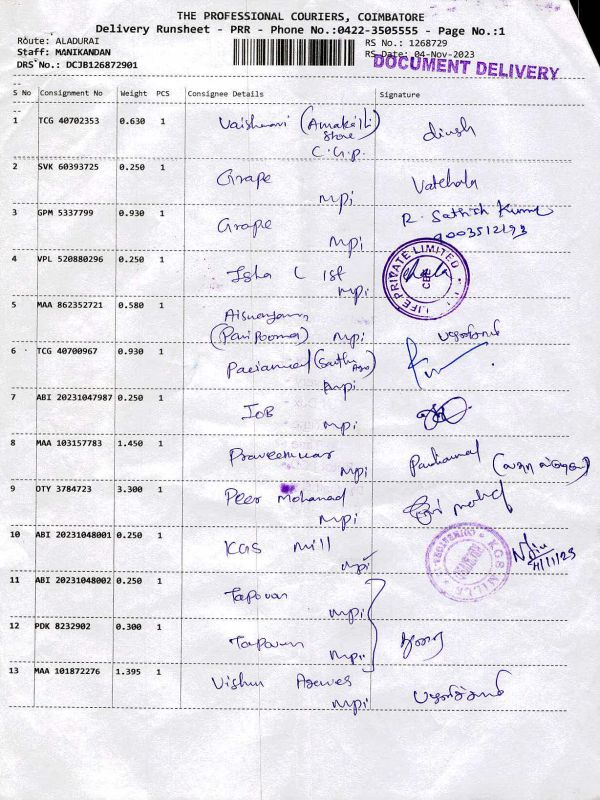 THE PROFESSIONAL COURIERS, COIMBATORE
Delivery Runsheet - PRR - Phone No.:0422-3505555 - Page No.:1
Route: ALADURAI
RS No.: 1268729
Staff: MANIKANDAN
RS Date: 04-Nov-2023
DRS No.: DCJB126872901
DOCUMENT DELIVERY
S No Consignment No Weight PCS Consignee Details Signature
1 TCG 40702353 0.630 1
Store
C.G.P.
2 SVK 60393725 0.250 1 Grape
mpi
3 GPM 5337799 0.930 1 Grape R. Sathish Kumar
mpi 9003512193
4 VPL 520880296 0.250 1 Isha L 1st
mpi
LIFE PRIVATE LIMITED
5 MAA 862352721 0.580 1
mpi
6 TCG 40700967 0.930 1
mpi
7 ABI 20231047987 0.250 1 IOB
mpi
8 MAA 103157783 1.450 1 Praveenkumar
mpi
9 OTY 3784723 3.300 1 Peer Mohamad
mpi
10 ABI 20231048001 0.250 1 KGS mill
mpi
KGS MILLS
4/11/23
11 ABI 20231048002 0.250 1 Tapovan
mpi
12 PDK 8232902 0.300 1 Tapovan
mpi
13 MAA 101872276 1.395 1 Vishnu
mpi